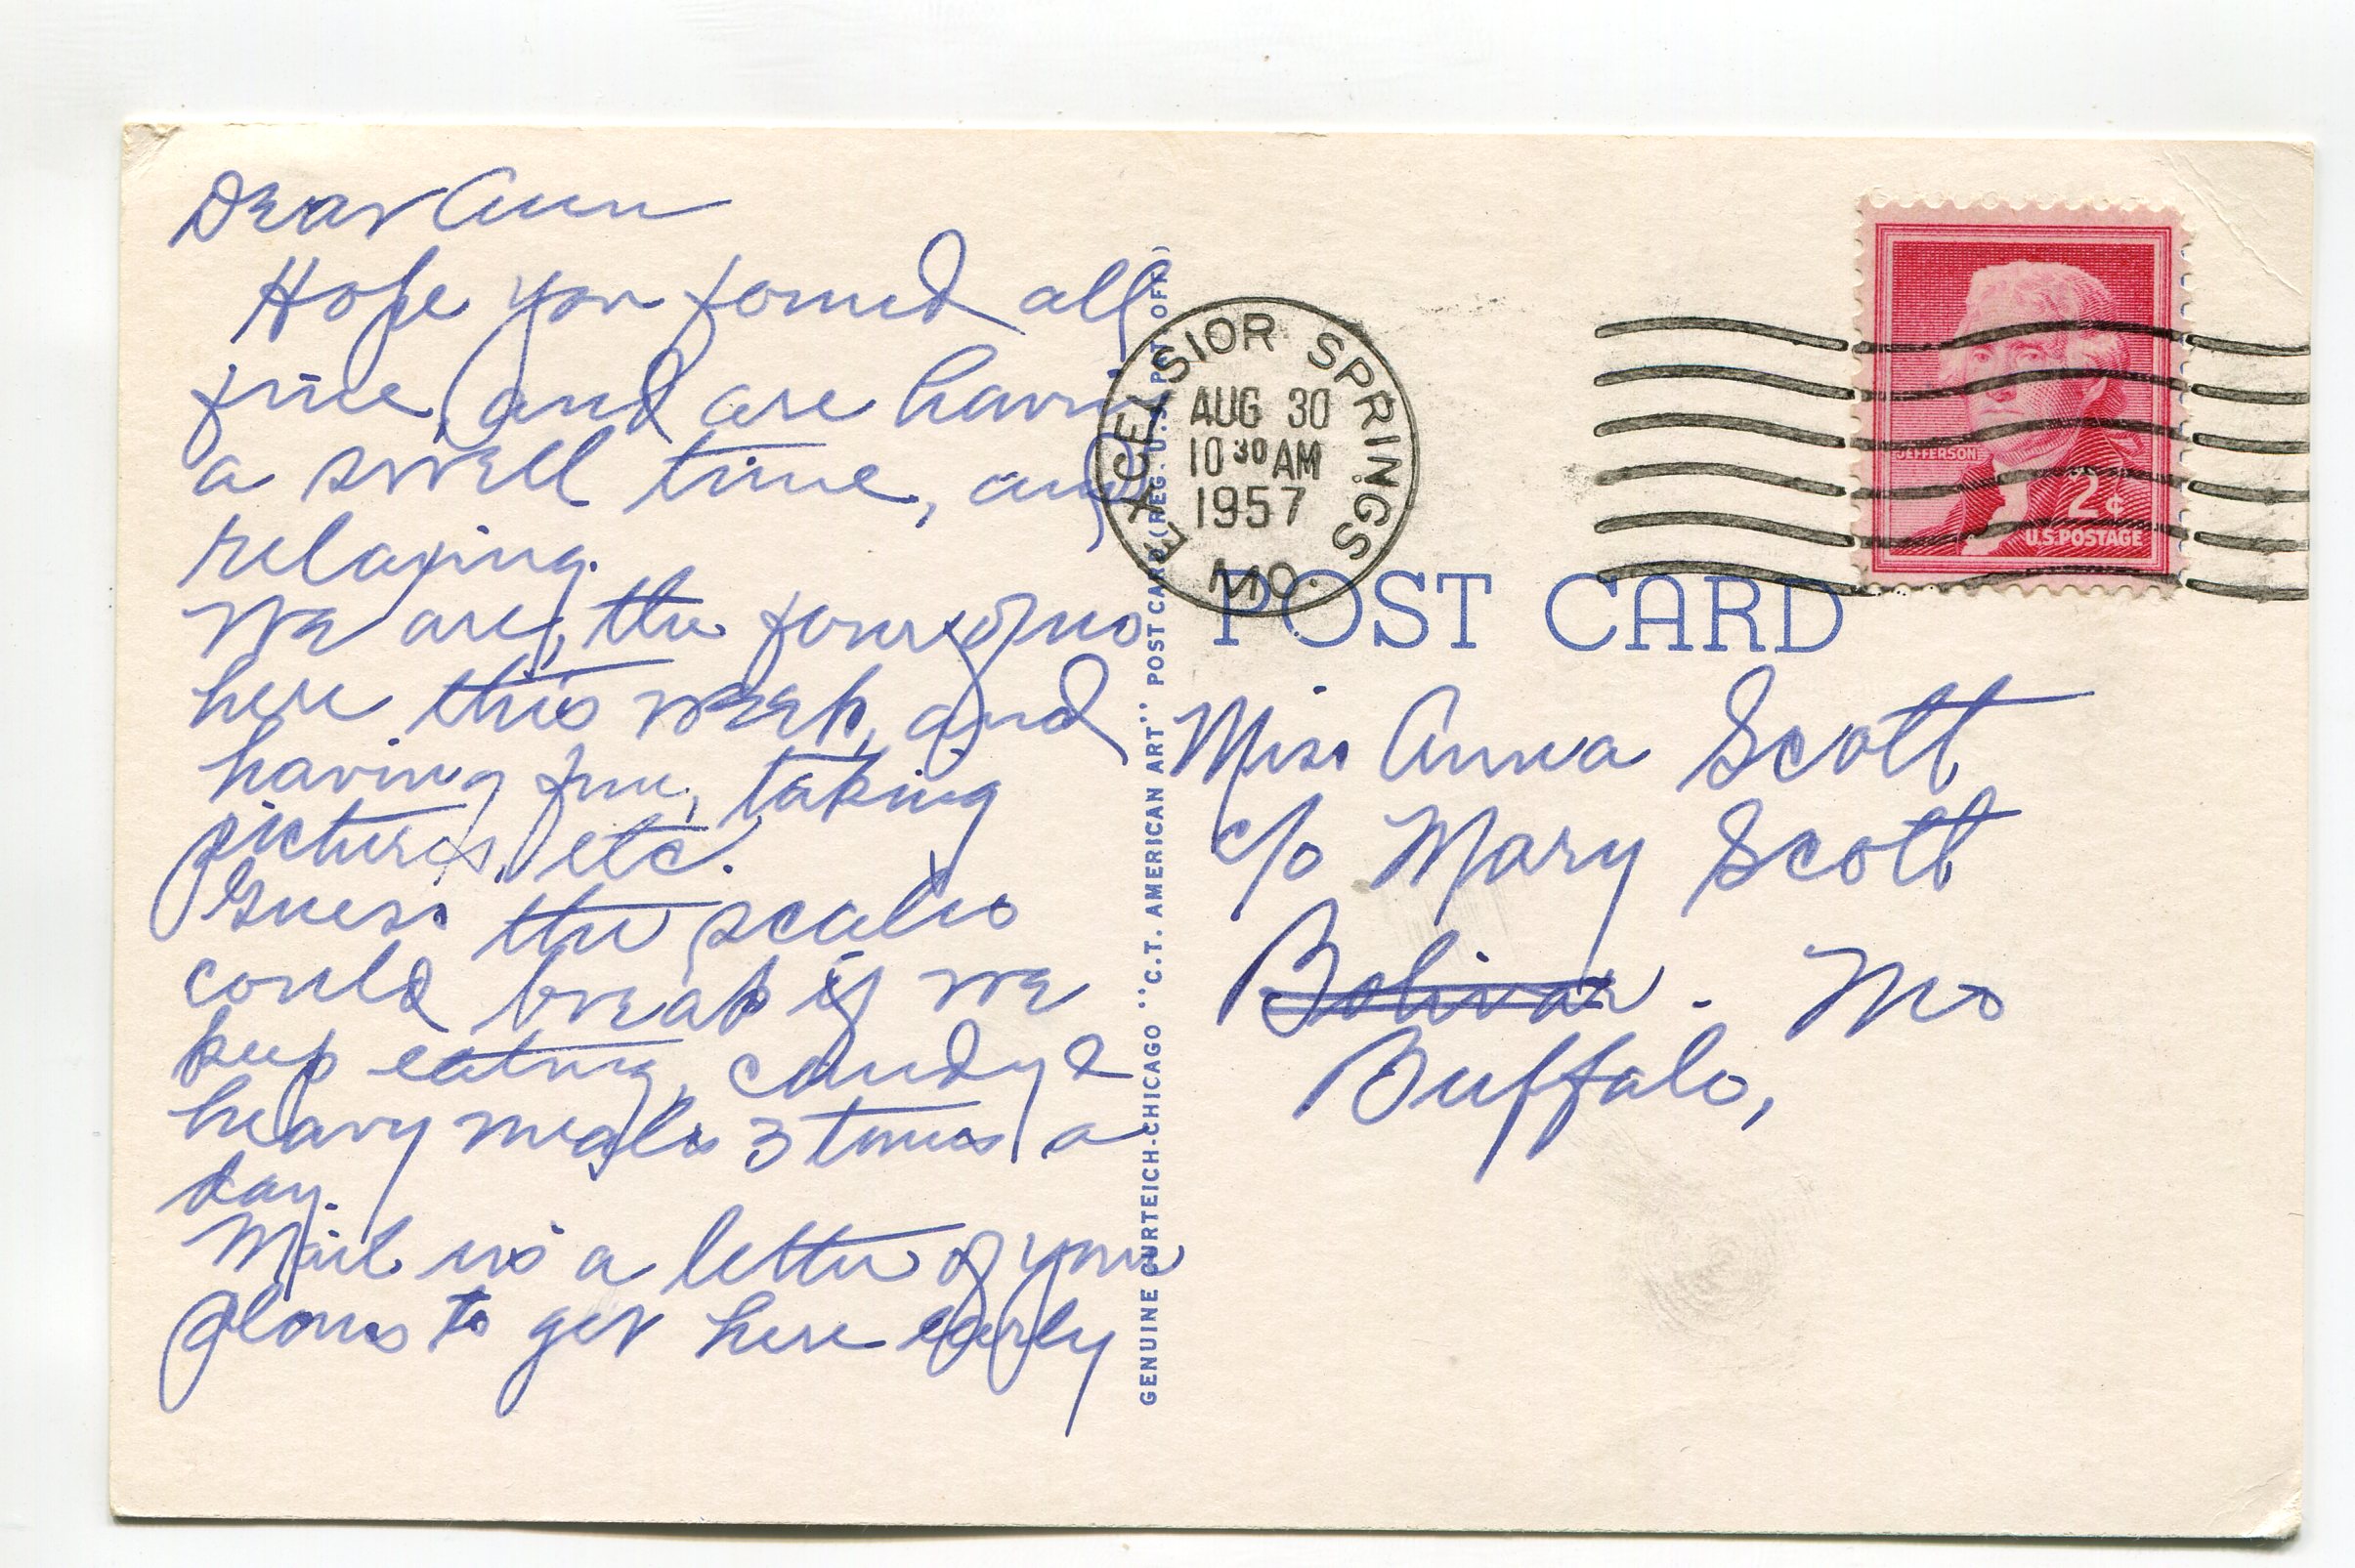 Dear Ann
Hope you found all
fine, and are havin
a swell time, and
relaxing.
We are, the four of us
here this week, and
having fun, taking
pictures, etc.
Guess the scales
could break if we
keep eating, candy &
heavy meals 3 times a
day.
Mail us a letter of your
plans to get here early
GENUINE CURTEICH-CHICAGO "C.T. AMERICAN ART" POST CARD (REG. U.S. PAT. OFF.)
EXCELSIOR SPRINGS
AUG 30
10 30 AM
1957
MO.
JEFFERSON
2¢
U.S. POSTAGE
POST CARD
Miss Anna Scott
c/o Mary Scott
Bolivar. Mo
Buffalo,